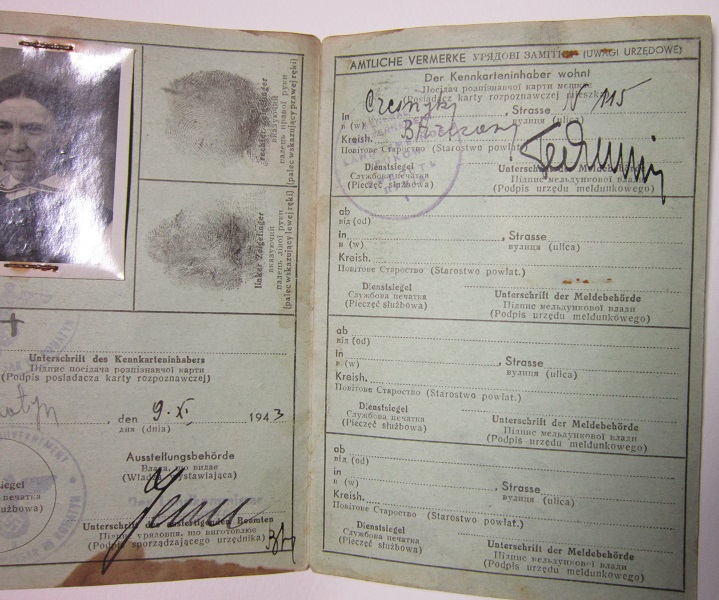 rechter Zeigefinger
вказуючий
палець правої руки
(palec wskazujący prawej ręki)
linker Zeigefinger
вказуючий
палець лівої руки
(palec wskazujący lewej ręki)
+
Unterschrift des Kennkarteninhabers
Підпис посідача розпізнавчої карти
(Podpis posiadacza karty rozpoznawczej)
, den 9. XI. 1943
дня (dnia)
Ausstellungsbehörde
Влада, що видає
(Władza wystawiająca)
Unterschrift des ausfertigenden Beamten
Підпис урядовця, що виготовлює
(Podpis sporządzającego urzędnika)
siegel
печатка
służbowa)
AMTLICHE VERMERKE УРЯДОВІ ЗАМІТКИ (UWAGI URZĘDOWE)
Der Kennkarteninhaber wohnt
Посідач розпізнавчої карти мешкає
(Posiadacz karty rozpoznawczej mieszka)
In , Strasse N 115
в (w) вулиця (ulica)
Kreish.
Повітове Староство (Starostwo powiat.)
Dienstsiegel
Службова печатка
(Pieczęć służbowa)
Unterschrift der Meldebehörde
Підпис мельдункової влади
(Podpis urzędu meldunkowego)
ab
від (od)
in , Strasse
в (w) вулиця (ulica)
Kreish.
Повітове Староство (Starostwo powiat.)
Dienstsiegel
Службова печатка
(Pieczęć służbowa)
Unterschrift der Meldebehörde
Підпис мельдункової влади
(Podpis urzędu meldunkowego)
ab
від (od)
in , Strasse
в (w) вулиця (ulica)
Kreish.
Повітове Староство (Starostwo powiat.)
Dienstsiegel
Службова печатка
(Pieczęć służbowa)
Unterschrift der Meldebehörde
Підпис мельдункової влади
(Podpis urzędu meldunkowego)
ab
від (od)
in , Strasse
в (w) вулиця (ulica)
Kreish.
Повітове Староство (Starostwo powiat.)
Dienstsiegel
Службова печатка
(Pieczęć służbowa)
Unterschrift der Meldebehörde
Підпис мельдункової влади
(Podpis urzędu meldunkowego)